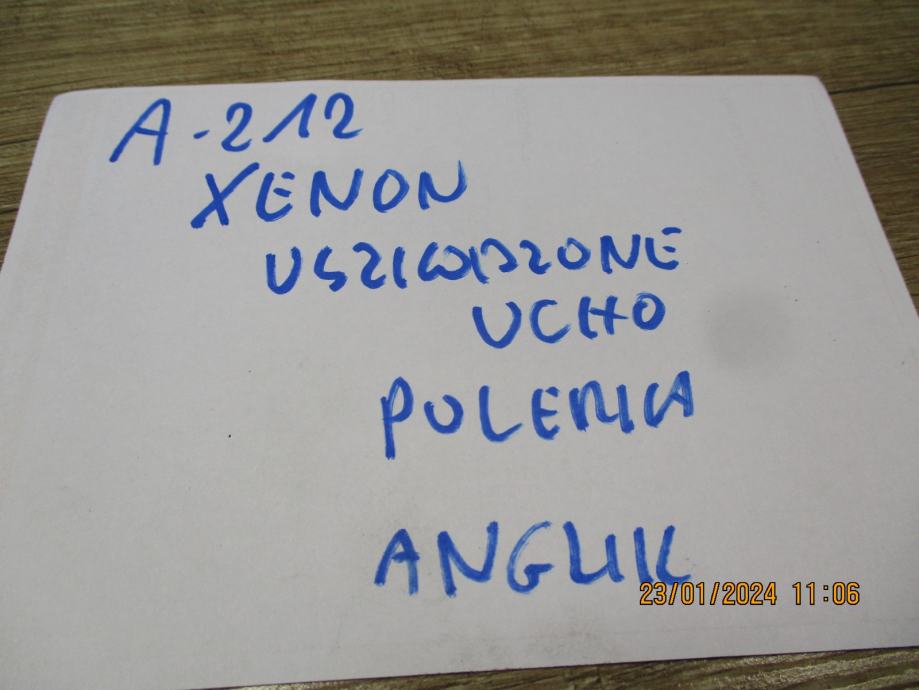 A-212
XENON
USZKODZONE
UCHO
POLERKA
ANGLIK
23/01/2024 11:06